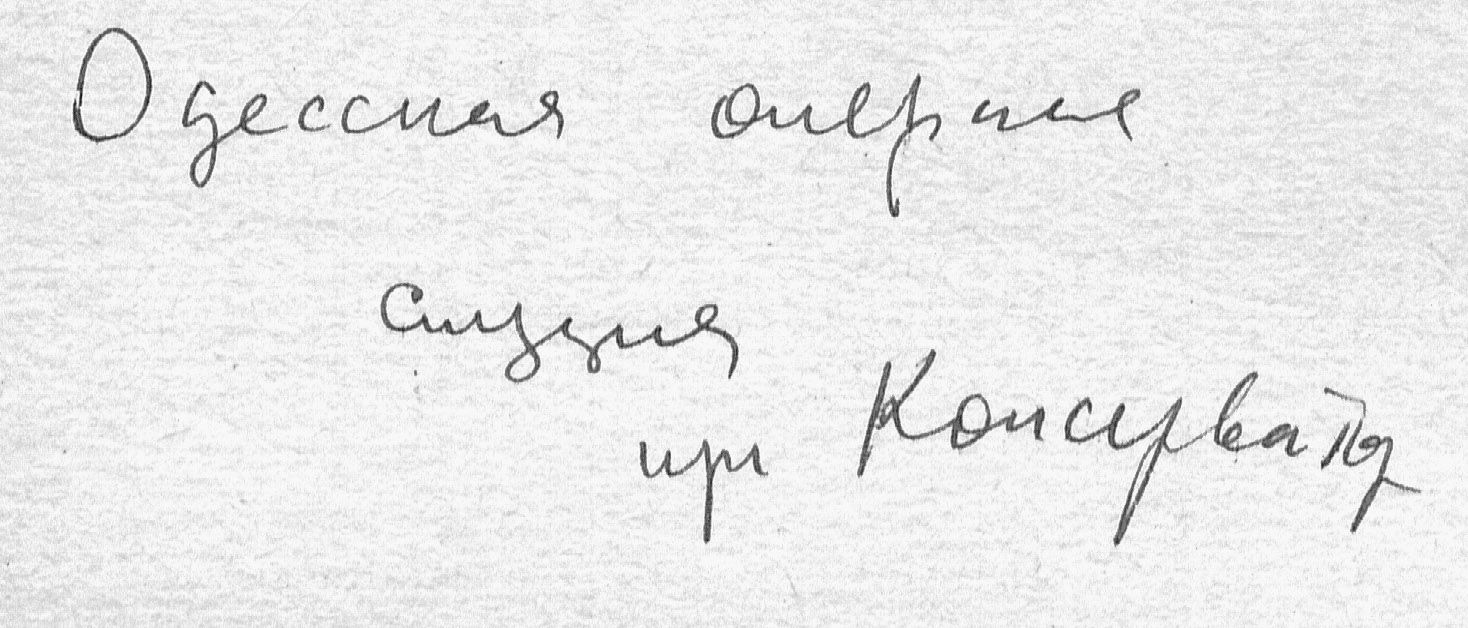 Одесская оперная
студия
при Консерватор